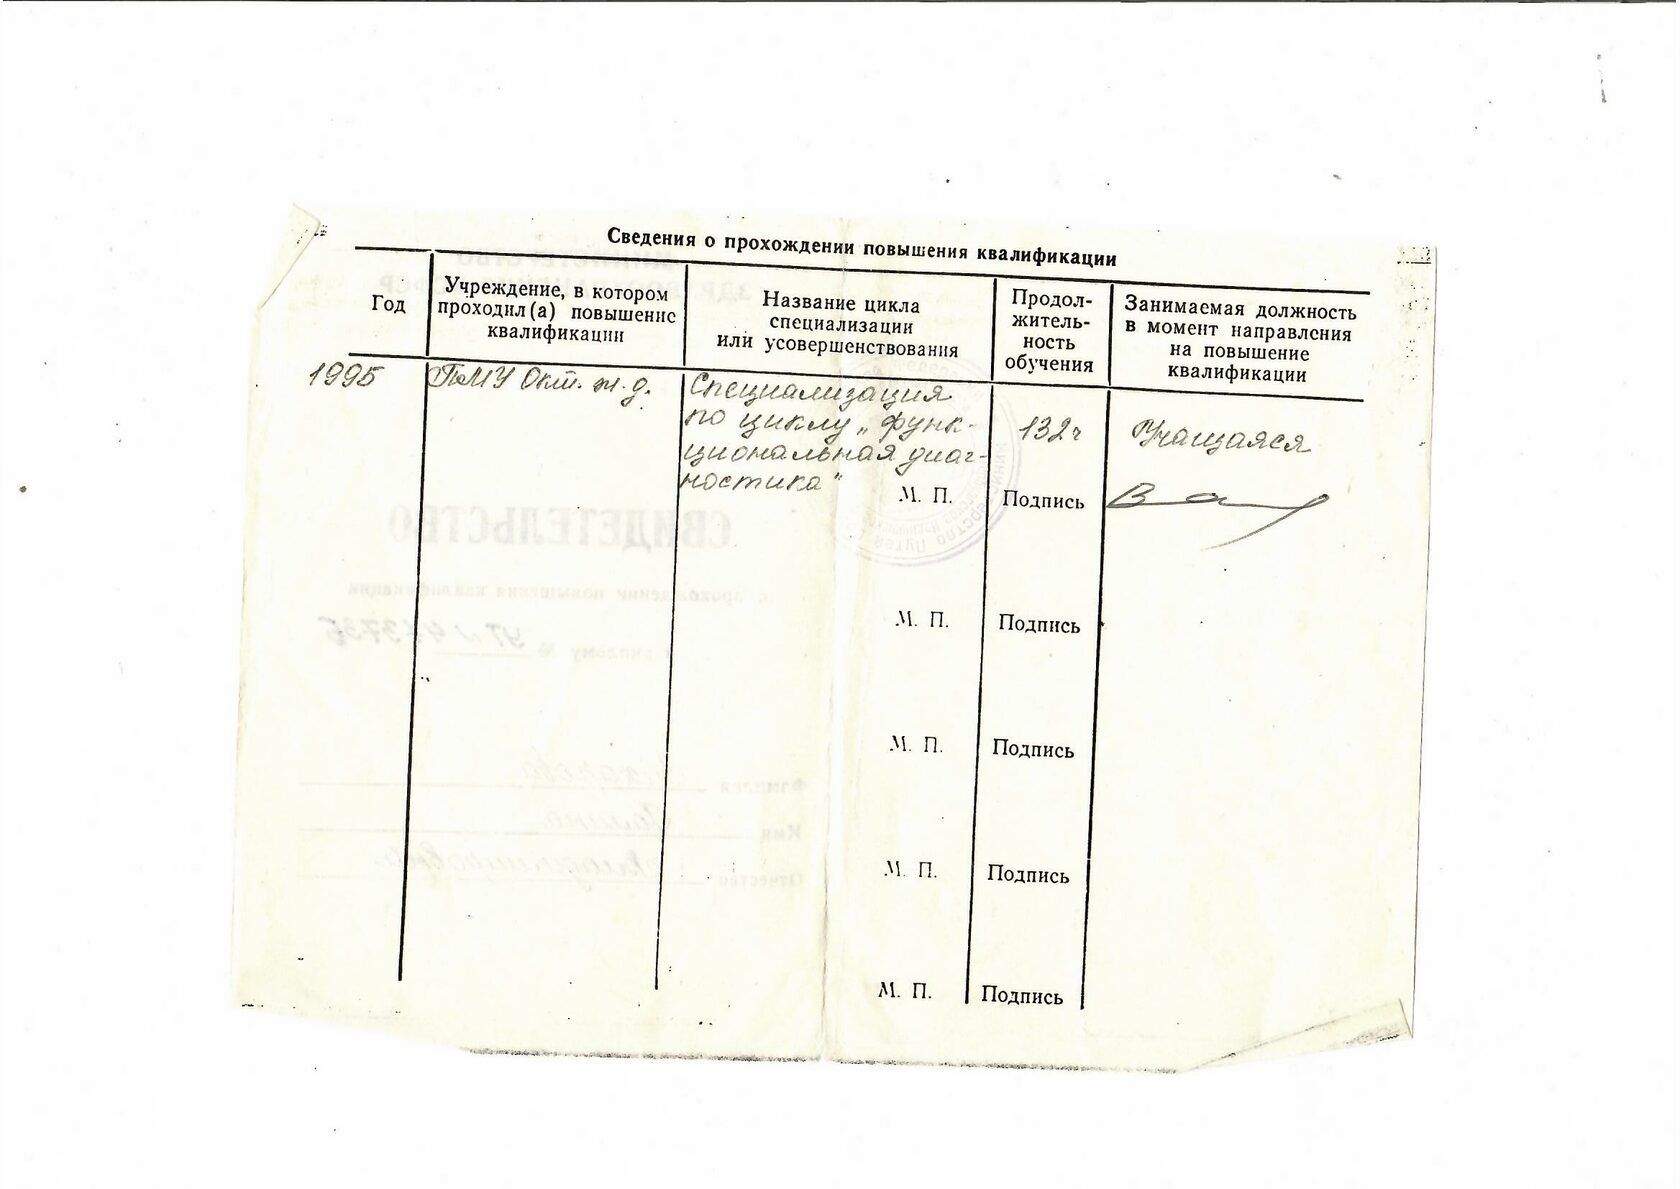 Сведения о прохождении повышения квалификации
Год
Учреждение, в котором
проходил(а) повышение
квалификации
Название цикла
специализации
или усовершенствования
Продол-
житель-
ность
обучения
Занимаемая должность
в момент направления
на повышение
квалификации
1995
БМУ Окт. ж. д.
Специализация
по циклу „функ-
циональная диаг-
ностика"
132 ч
Учащаяся
М. П.
Подпись
М. П.
Подпись
М. П.
Подпись
М. П.
Подпись
М. П.
Подпись
СВИДЕТЕЛЬСТВО
о прохождении повышения квалификации
к диплому №
Фамилия
Имя
Отчество